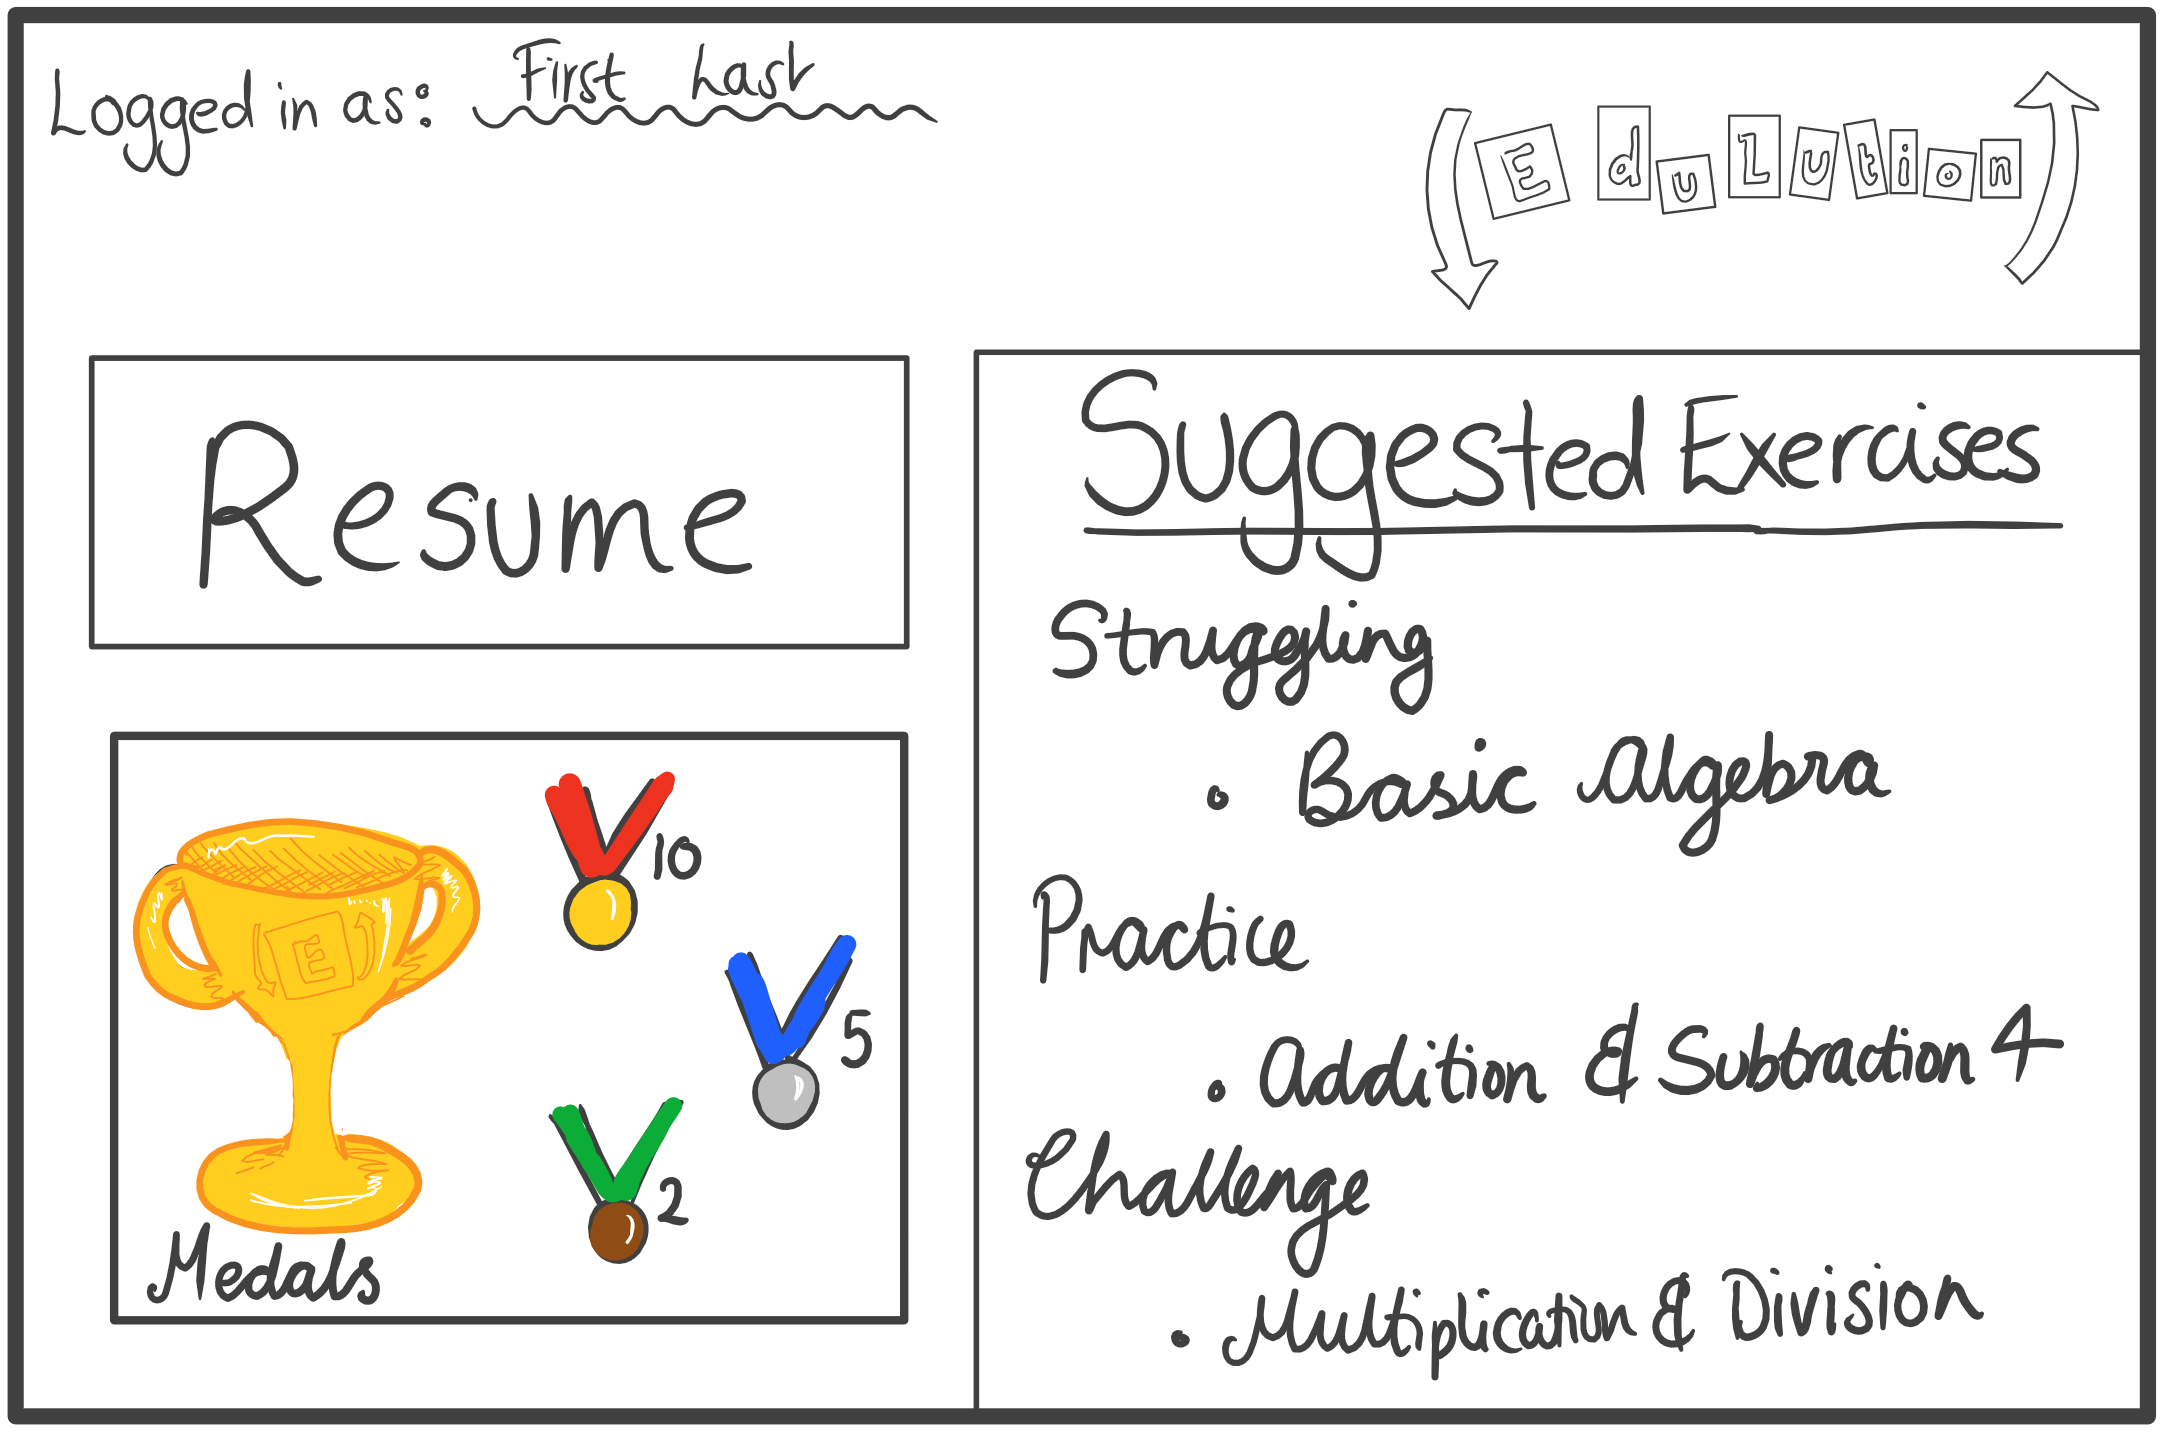 Logged in as: First Last
EduLution
Resume
Suggested Exercises
Struggling
• Basic Algebra
Practice
• Addition & Subtraction 4
Challenge
• Multiplication & Division
10
5
2
E
Medals